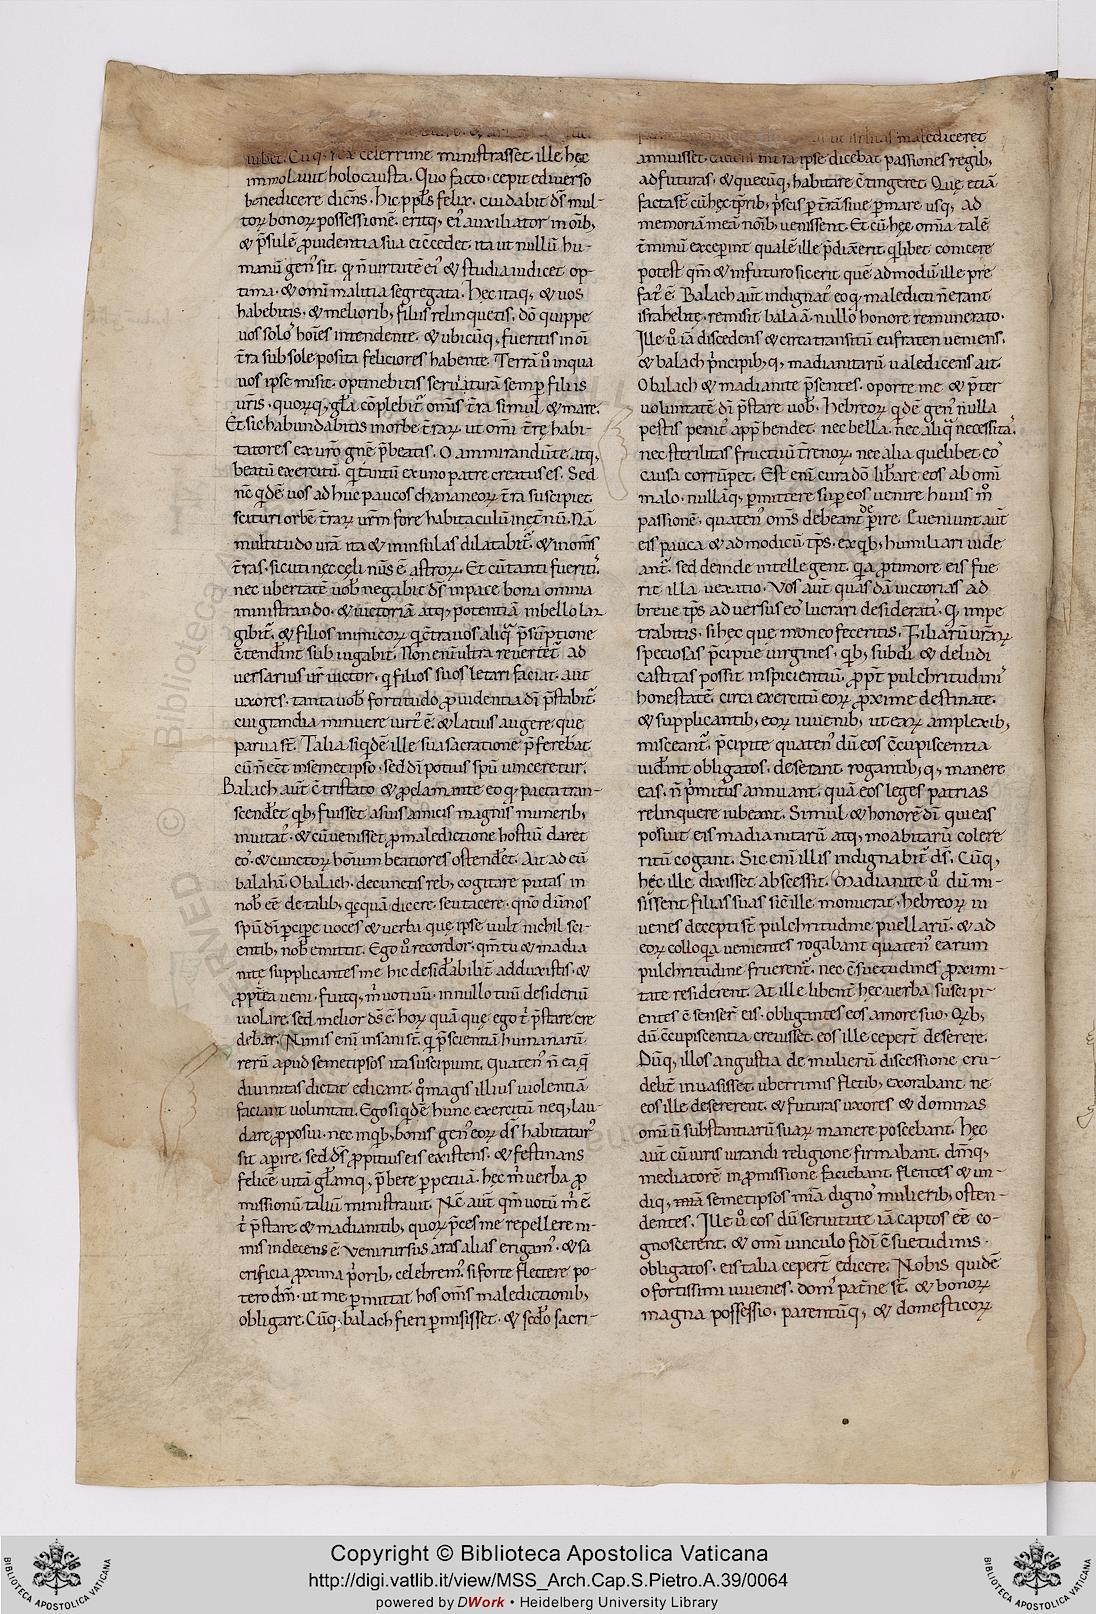 iubet. Cūq; rex celerrime ministrasset. ille hęc
immolauit holocausta. Quo facto. cepit ediuerso
benedicere dicēs. Hic ppl̄s felix. cui dabit ds̄ mul-
toꝝ bonoꝝ possessionē. eritq; eiꝰ auxiliator in oīb;
& p̄sulē ꝓuidentia sua ei c̄cedet. ita ut nullū hu-
manū genꝰ sit. qͥ n̄ uirtutē eiꝰ & studia iudicet op-
tima. & omī malitia segregata. Hęc itaq; & uos
habebitis. & meliorib; filiis relinquetis. dō quippe
uos soloˢ hoīes intendente. & ubicūq; fueritis in oī
t̄ra sub sole posita feliciores habente. Terrā ū̊ in qua
uos ipse misit. optinebitis seruaturā semp̄ filiis
ur̄is. quoꝝq; gl̄a cōplebitᷣ om̄is t̄ra simul & mare.
Et sic habundabitis in orbe t̄raꝝ. ut omī t̄rę habi-
tatores ex ur̄o gn̄e p̄beatis. O ammirandū te atq;
beatū exercitū. qͥ tantū ex uno patre creatus es. Sed
nc̄ qͥdē uos adhuc paucos chananeoꝝ t̄ra suscipiet.
scituri orbē t̄raꝝ ur̄m fore habitaculū in ęt̄nū. Nā
multitudo ur̄a ita & in insulas dilatabitᷣ. & in om̄s
t̄ras. sicuti nec cęli nūs ē astroꝝ. Et cū tanti fueritiˢ.
nec ubertatē uob̄ negabit ds̄ in pace bona omnia
ministrando. & uictoriā atq; potentiā in bello lar-
gibitᷣ. & filios inimicoꝝ qͥ c̄tra uos aliqͣ p̄sūptione
c̄tender̄int sub iugabit. Non enī ultra reuertetᷣ ad
uersarius ur̄ uictor. qͥ filios suos letari faciat. aut
uxores. tanta uob̄ fortitudo ꝓuidentia dī p̄stabitᷣ.
cui grandia minuere uirtꝰ ē. & latius augere que
parua st̄. Talia siqͥdē ille sua sacratione p̄ferebat.
cū n̄ eēt in semetipso. sed dī potius spū uinceretur.
Balach aut̄ c̄tristato & ꝓclamante eo qͥ pacta tran-
scender̄et qͥb; fuisset a suis amicis magnis munerib;
inuitatꝰ. & cū uenisset ꝓ maledictione hostiū daret
eoˢ. & cunctoꝝ hoīum beatiores ostender̄et. Ait ad eū
balahā. O balach. de cunctis reb; cogitare putas in
nob̄ eē de talib; qͥcquā dicere. seu tacere. qn̄o dū nos
spū dī p̄cipere uoces & uerba quę ipse uult nichil sci-
entib; nob̄ emittit. Ego ū̊ recordor. qm̄ tu & madia
nitę supplicantes me hic desid̄abilit̄ adduxistis. &
ꝓpt̄ea ueni. fuitq; m̄ uoti uīī. in nullo tuū desideriū
uiolare. sed melior ds̄ ē. hoꝝ quā quę ego t̄ p̄stare cre
debaꝝ. Nimis enī insani st̄. qͥ p̄scientiā humanarū
rerū apud semetipsos ita suscipiunt. quatenꝰ n̄ ea qͣ
diuinitas dictat edicant. qͦ magis illius uiolentiā
faciant uoluntati. Ego siqͥdē hunc exercitū neq; lau-
dare ꝓposui. nec in qͥb; bonis genꝰ eoꝝ ds̄ habitaturꝰ
sit ap̄ire. sed ds̄ ꝓpitius eis existens. & festinans
felicē uitā gl̄amq; p̄bere p̄petuā. hęc m̄ uerba ꝓ
missionū taliū ministrauit. Nc̄ aut̄ qm̄ uotū m̄ ē
t̄ p̄stare & madianitib; quoꝝ p̄ces me repellere ni-
mis indecens ē. uenirursus aras alias erigamꝰ. & sa
crificia ꝓxima p̄orib; celebremꝰ. si forte flectere po-
tero dm̄. ut me p̄mittat hos om̄s maledictionib;
obligare. Cūq; balach fieri p̄misisset. & scd̄o sacri-
malediceret
annuisset. ipse dicebat passiones regib;
ad futuras. & quecūq; habitare c̄tingeret. Quę etiā
facta st̄ cū hęc tp̄rib; p̄scis p̄ t̄rā siue p̄ mare usq; ad
memoriā meā noīb; uenissent. Et cū hęc omia talē
t̄minū exceperint qualē ille p̄dixerit. qͥlibet conicere
potest qm̄ & in futuro sic erit quē admodū ille pre
fatꝰ ē. Balach aut̄ indignatꝰ eo qͥ maledicti n̄ erant
israhelite. remisit balaā. nullo honore remunerato.
Ille ū̊ iā discedens & circa transitū eufraten ueniens.
& balach p̄ncipib; q; madianitarū ualedicens ait.
O balach & madianite p̄sentes. oporte me & p̄ter
uoluntatē dī p̄stare uob̄. Hebreoꝝ qͥdē genꝰ nulla
pestis penitꝰ app̄hendet. nec bella. nec aliqͣ necessitaˢ.
nec sterilitas fructuū t̄renoꝝ. nec alia quelibet eoˢ
causa corrūpet. Est enī cura dō lib̄are eos ab omī
malo. nullāq; p̄mittere sup̄ eos uenire huius m̊
passionē. quatenꝰ om̄s debeant deperire. Eueniunt aut̄
eis pauca & ad modicū tp̄s. ex qͥb; humiliari uide
antᷣ. sed deinde intellegent. qͥa ꝓ timore eis fue
rit illa uexatio. Vos aut̄ quasdā uictorias ad
breue tp̄s aduersus eoˢ lucrari desideratiˢ. qͥ impe
trabitis. si hęc quę moneo feceritis. Filiarū ur̄aꝝ
speciosas p̄cipue uirgines. qͥb; subdi & deludi
castitas possit inspicientiū. ꝓpt̄ pulchritudiniˢ
honestatē. circa exercitū eoꝝ ꝓxime destinate.
& supplicantib; eoꝝ iuuenib; ut eaꝝ amplexib;
misceantᷣ. p̄cipite quatenꝰ dū eos c̄cupiscentia
uider̄int obligatos. deserant. rogantib;q; manere
eas. n̄ p̄mitus annuant. quā eos leges patrias
relinquere iubeant. Simul & honorē dī qui eas
posuit eis madianitarū atq; moabitarū colere
ritū cogant. Sic enī illis indignabitᷣ ds̄. Cūq;
hęc ille dixisset abscessit. Madianite ū̊ dū mi-
sissent filias suas sic̄ ille monuerat. hebreoꝝ iu
uenes decepti st̄ pulchritudine puellarū. & ad
eoꝝ colloqͥa uenientes rogabant quatenꝰ earum
pulchritudine fruerentᷣ. nec c̄suetudines ꝓximi-
tate residerent. At ille libent̄ hęc uerba suscipi-
entes c̄senser̄t eis. obligantes eos amore suo. Qͥb;
dū c̄cupiscentia creuisset. eos ille ceper̄t deserere.
Dūq; illos angustia de mulierū discessione cru-
deliꝰ inuasisset. uberrimis fletib; exorabant ne
eos ille desererent. & futuras uxores & dominas
omīū substantiarū suaꝝ manere poscebant. Hęc
aut̄ cū iuris iurandi religione firmabant. dm̄q;
mediatorē in ꝓmissione faciebant. flentes & un-
diq; semetipsos mīa dignoˢ mulierib; osten-
dentes. Ille ū̊ eos dū seruitute iā captos eē co-
gnoscerent. & omī uinculo fidī c̄suetudinis
obligatos. eis talia ceper̄t edicere. Nobis quidē
o fortissimi iuuenes. domꝰ pat̄ne st̄. & bonoꝝ
magna possessio. parentūq; & domesticoꝝ
Copyright © Biblioteca Apostolica Vaticana
http://digi.vatlib.it/view/MSS_Arch.Cap.S.Pietro.A.39/0064
powered by DWork • Heidelberg University Library